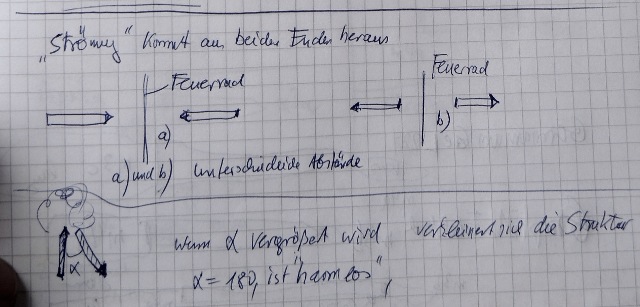 „Strömung" kommt aus beiden Enden heraus
Feuerrad
Feuerrad
a)
b)
a) und b) unterschiedliche Abstände
wenn α vergrößert wird verkleinert sich die Struktur
α
α = 180, ist "harmlos",